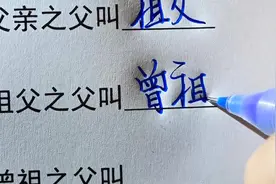 父亲之父叫祖父
祖父之父叫曾祖
曾祖之父叫